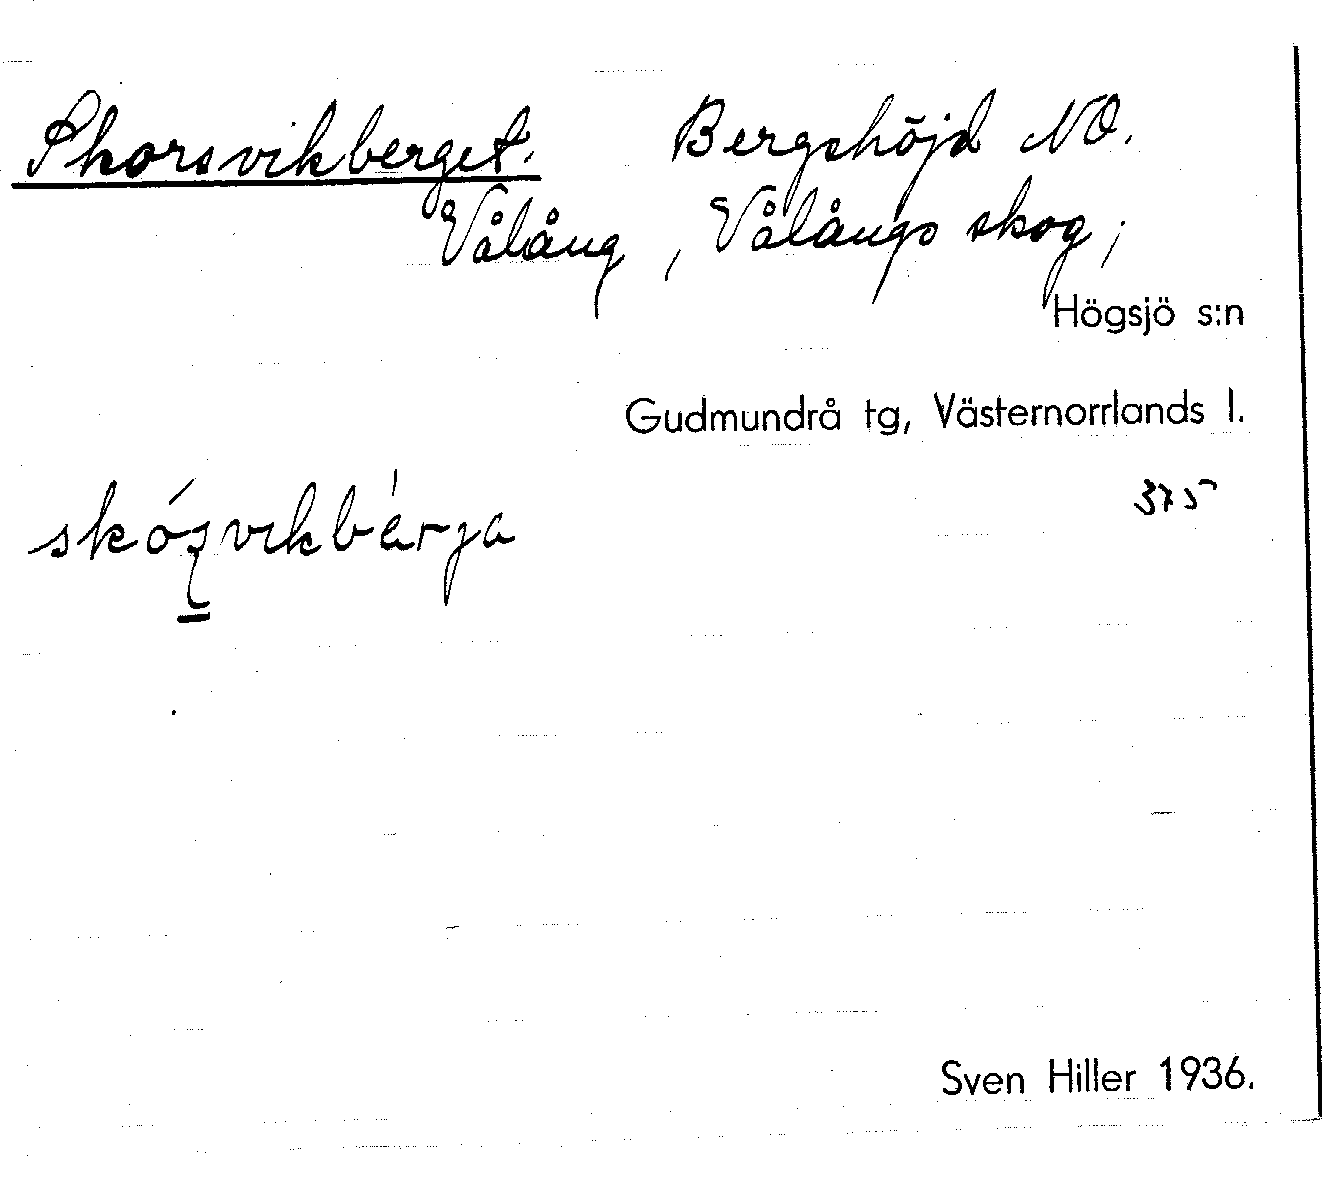 Skorsvikberget. Bergshöjd NO.
Vålång, Vålångs skog,
Högsjö s:n
Gudmundrå tg, Västernorrlands l.
375
Sven Hiller 1936.